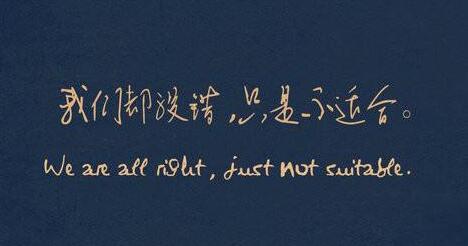 我们都没错，只是不适合。
We are all right, just not suitable.